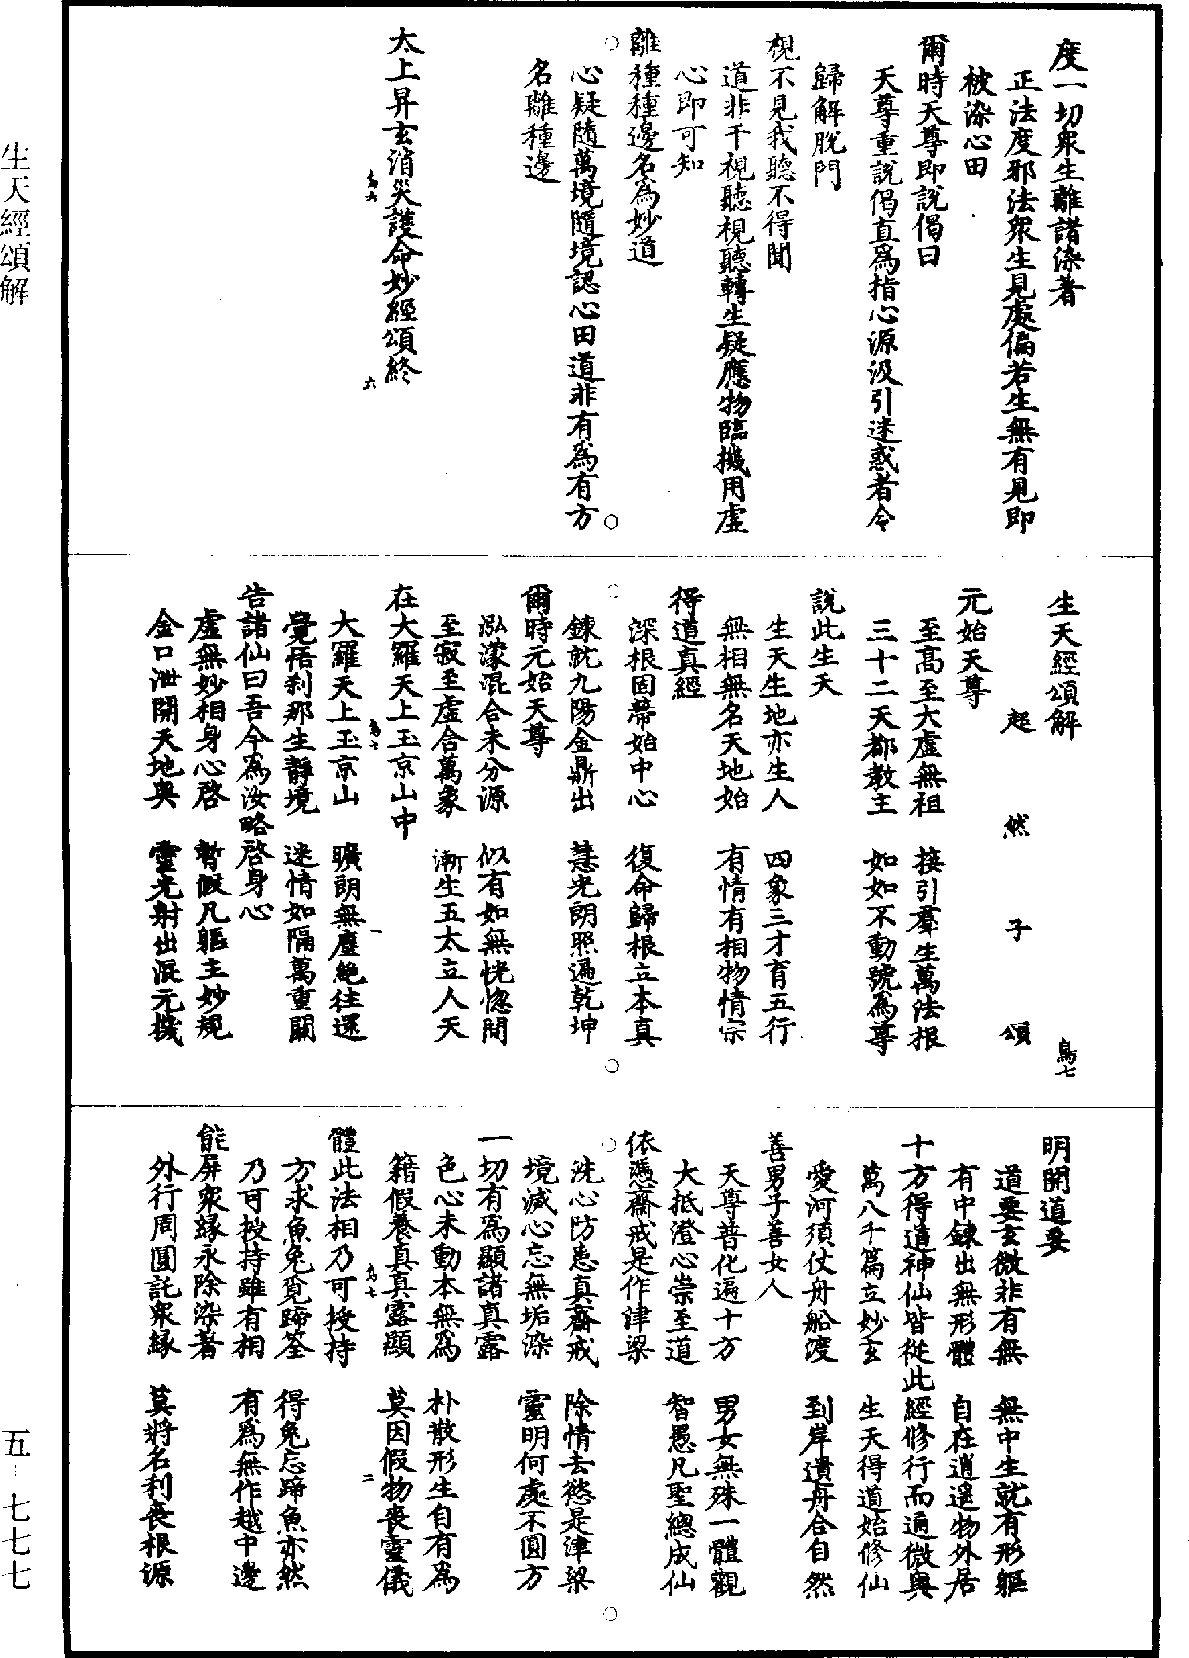 度一切衆生離諸染著
正法度邪法衆生見處偏若生無有見即
被染心田
爾時天尊即說偈曰
天尊重說偈直爲指心源汲引迷惑者令
歸解脫門
視不見我聽不得聞
道非干視聽視聽轉生疑應物臨機用虛
心即可知
離種種邊名爲妙道
心疑隨萬境隨境認心田道非有爲有方
名離種邊
太上昇玄消災護命妙經頌終
鳥六
六
生天經頌解
鳥七
起然子頌
元始天尊
至高至大虛無祖　接引羣生萬法根
三十二天都教主　如如不動號爲尊
說此生天
生天生地亦生人　四象三才育五行
無相無名天地始　有情有相物情宗
得道真經
深根固蔕始中心　復命歸根立本真
鍊就九陽金鼎出　慧光朗照遍乾坤
爾時元始天尊
泓濛混合未分源　似有如無恍惚間
至寂至虛合萬象　漸生五太立人天
在大羅天上玉京山中
鳥七
一
大羅天上玉京山　曠朗無塵絶往還
覺悟刹那生靜境　迷情如隔萬重關
告諸仙曰吾今爲汝略啓身心
虛無妙相身心啓　暫假凡軀主妙規
金口泄開天地奥　靈光射出混元機
明開道要
道要玄微非有無　無中生就有形軀
有中鍊出無形體　自在逍遥物外居
十方得道神仙皆從此經修行而通微奥
萬八千篇立妙玄　生天得道始修仙
愛河須仗舟船渡　到岸遺舟合自然
善男子善女人
天尊普化遍十方　男女無殊一體觀
大抵澄心崇至道　智愚凡聖總成仙
依憑齋戒是作津梁
洗心防患真齋戒　除情去慾是津梁
境滅心忘無垢染　靈明何處不圓方
一切有爲顯諸真露
色心未動本無爲　朴散形生自有爲
籍假養真真露顯　莫因假物喪靈儀
鳥七
二
體此法相乃可授持
方求魚兔覓蹄筌　得兔忘蹄魚亦然
乃可授持雖有相　有爲無作越中邊
能屏衆緣永除染著
外行周圓託衆緣　莫將名利喪根源
生天經頌解
五－七七七